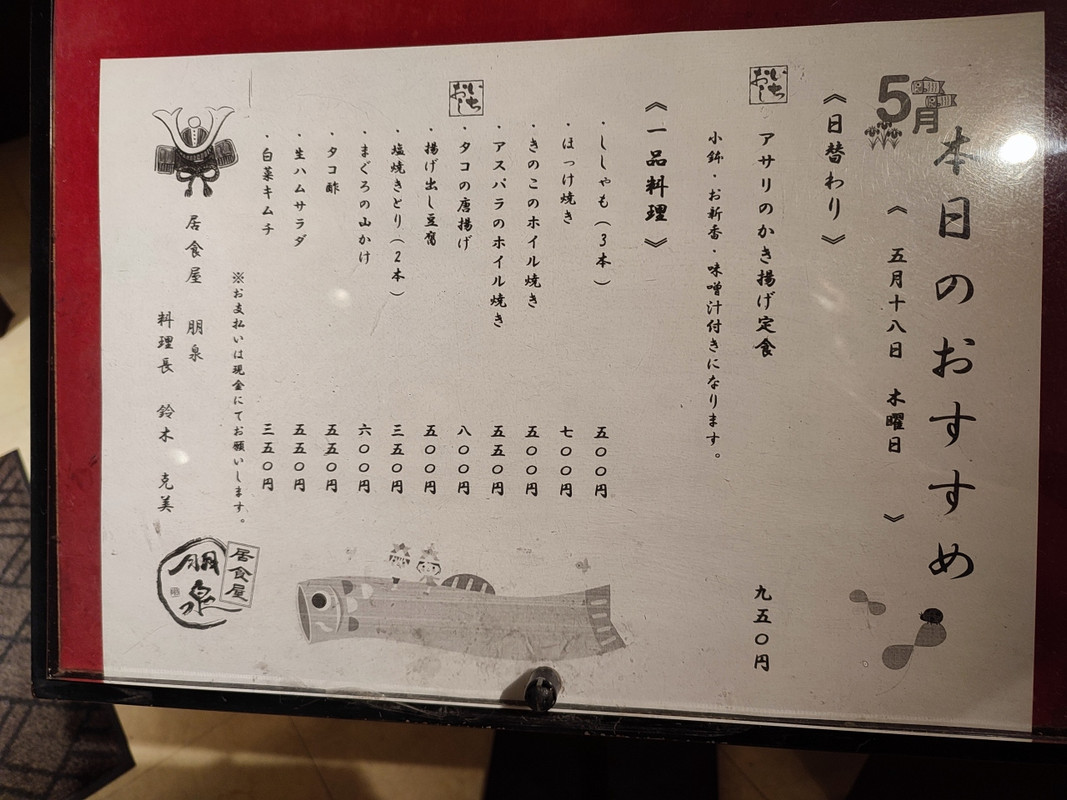 本日のおすすめ
5月
《 五月十八日 木曜日 》
《日替わり》
いちおし
アサリのかき揚げ定食 九五〇円
小鉢・お新香・味噌汁付きになります。
《一品料理》
・ししゃも(3本) 五〇〇円
・ほっけ焼き 七〇〇円
・きのこのホイル焼き 五〇〇円
・アスパラのホイル焼き 五五〇円
いちおし
・タコの唐揚げ 八〇〇円
・揚げ出し豆腐 五〇〇円
・塩焼きとり(2本) 三五〇円
・まぐろの山かけ 六〇〇円
・タコ酢 五五〇円
・生ハムサラダ 五五〇円
・白菜キムチ 三五〇円
※お支払いは現金にてお願いします。
居食屋 朋泉
料理長 鈴木 克美
居食屋
朋泉